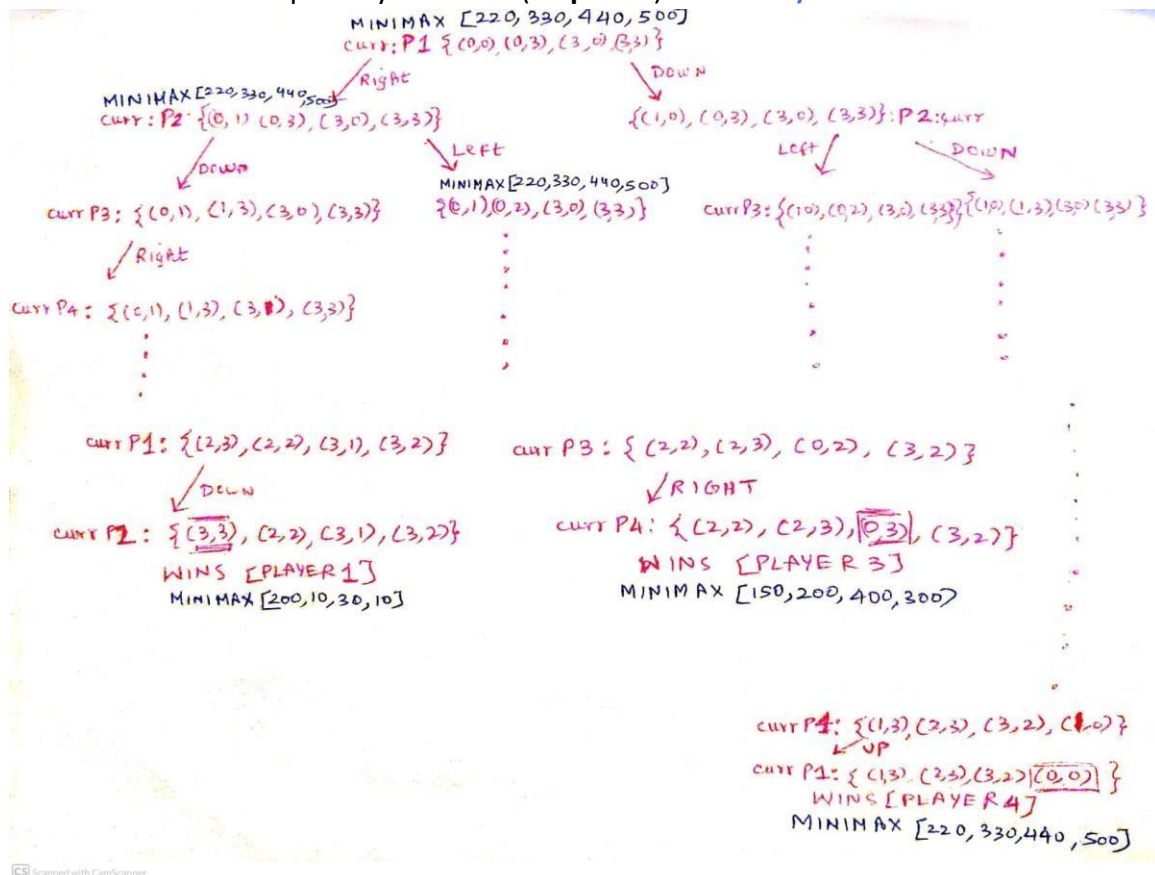 MINIMAX [220, 330, 440, 500]
curr: P1 {(0,0), (0,3), (3,0), (3,3)}
Right
DOWN
MINIMAX [220, 330, 440, 500]
curr: P2 {(0,1) (0,3), (3,0), (3,3)}
{(1,0), (0,3), (3,0), (3,3)}: P2: curr
DOWN
Left
Left
DOWN
MINIMAX [220,330,440,500]
curr P3: {(0,1), (1,3), (3,0), (3,3)}
{(0,1),(0,2), (3,0), (3,3)}
curr P3: {(1,0), (0,2), (3,0), (3,3)} {(1,0), (1,3) (3,0) (3,3)}
Right
curr P4: {(0,1), (1,3), (3,1), (3,3)}
curr P1: {(2,3), (2,2), (3,1), (3,2)}
curr P3: {(2,2), (2,3), (0,2), (3,2)}
DOWN
RIGHT
curr P2: {(3,3), (2,2), (3,1), (3,2)}
curr P4: {(2,2), (2,3), (0,3), (3,2)}
WINS [PLAYER 1]
WINS [PLAYER 3]
MINIMAX [200,10,30,10]
MINIMAX [150,200,400,300)
curr P4: {(1,3), (2,3), (3,2), (1,0)}
UP
curr P1: {(1,3), (2,3), (3,2) (0,0)}
WINS [PLAYER 4]
MINIMAX [220, 330, 440, 500]
CS Scanned with CamScanner